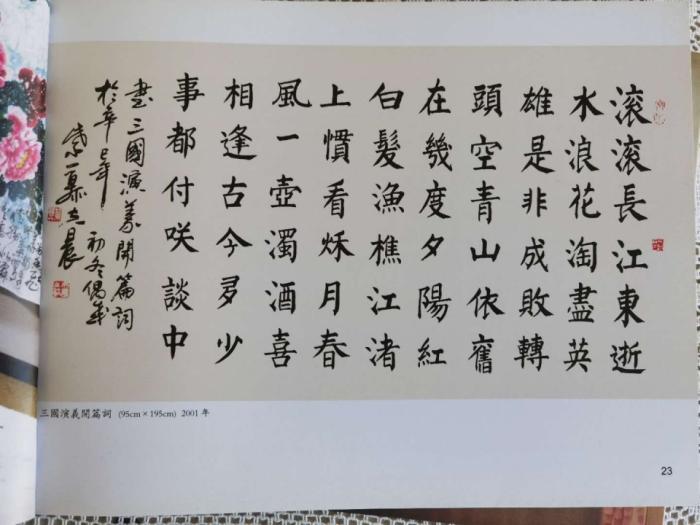 滚滚長江東逝
水浪花淘盡英
雄是非成敗轉
頭空青山依舊
在幾度夕陽紅
白髮漁樵江渚
上慣看秋月春
風一壺濁酒喜
相逢古今多少
事都付咲談中
書三國演義開篇詞
於辛巳年初冬偶成
三國演義開篇詞 (95cm×195cm) 2001年
23